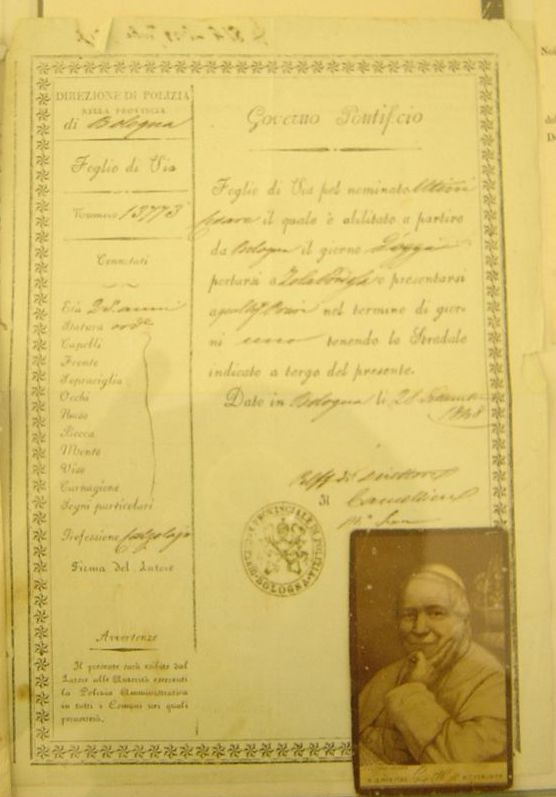 DIREZIONE DI POLIZIA
NELLA PROVINCIA
di Bologna
Foglio di Via
Numero 13773
Connotati
Età 25 anni
Statura
Capelli
Fronte
Sopraciglia
Occhi
Naso
Bocca
Mento
Viso
Carnagione
Segni particolari
Professione Calzolajo
Firma del Latore
Avvertenze
Il presente sarà esibito dal
Latore alle Autorità esercenti
la Polizia Amministrativa
in tutti i Comuni nei quali
pernotterà.
Governo Pontificio
Foglio di Via pel nominato
il quale è abilitato a partire
da Bologna il giorno d'oggi
portarsi a e presentarsi
a nel termine di gior-
ni uno tenendo lo Stradale
indicato a tergo del presente.
Dato in Bologna li 28
1848
Il
BOLOGNA